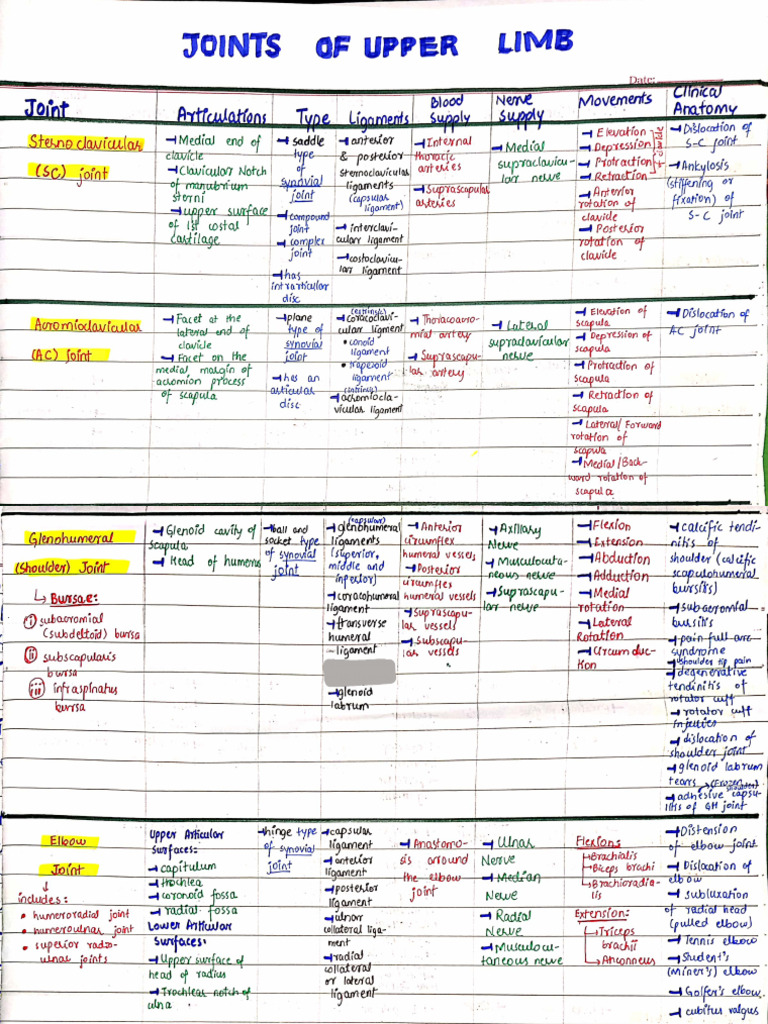 JOINTS OF UPPER LIMB
Date:
Joint
Articulations
Type
Ligaments
Blood
Supply
Nerve
Supply
Movements
Clinical
Anatomy
Sternoclavicular
(SC) joint
→ Medial end of
clavicle
→ Clavicular Notch
of manubrium
sterni
→ upper surface
of 1st costal
cartilage
→ saddle
type
of
synovial
joint
→ compound
joint
→ complex
joint
→ has
intrarticular
disc
→ anterior
& posterior
sternoclavicular
ligaments
(capsular
ligament)
→ interclavi-
cular ligament
→ costoclavicu-
lar ligament
→ Internal
thoracic
arteries
→ Suprascapular
arteries
→ Medial
supraclavicu-
lar nerve
→ Elevation
→ Depression
→ Protraction
→ Retraction
→ Anterior
rotation of
clavicle
→ Posterior
rotation of
clavicle
→ Dislocation of
S-C joint
→ Ankylosis
(stiffening or
fixation) of
S-C joint
Acromioclavicular
(AC) joint
→ Facet at the
lateral end of
clavicle
→ Facet on the
medial margin of
acromion process
of scapula
→ plane
type of
synovial
joint
→ has an
articular
disc
→ coracoclavi-
cular ligment
• conoid
ligament
• trapezoid
ligament
→ acromiocla-
vicular ligament
→ Thoracoacro-
mial artery
→ Suprascapu-
lar artery
→ Lateral
supraclavicular
nerve
→ Elevation of
scapula
→ Depression of
scapula
→ Protraction of
scapula
→ Retraction of
scapula
→ Lateral/Forward
rotation of
scapula
→ Medial/Back-
ward rotation of
scapula
→ Dislocation of
AC joint
Glenohumeral
(Shoulder) Joint
↳ Bursae:
(i) subacromial
(subdeltoid) bursa
(ii) subscapularis
bursa
(iii) infraspinatus
bursa
→ Glenoid cavity of
scapula
→ Head of humerus
→ ball and
socket type
of synovial
joint
(capsular)
→ glenohumeral
ligaments
(superior,
middle and
inferior)
→ coracohumeral
ligament
→ transverse
humeral
ligament
→ glenoid
labrum
→ Anterior
circumflex
humeral vessels
→ Posterior
circumflex
humeral vessels
→ Suprascapu-
lar vessels
→ Subscapu-
lar vessels
→ Axillary
Nerve
→ Musculocuta-
neous nerve
→ Suprascapu-
lar nerve
→ Flexion
→ Extension
→ Abduction
→ Adduction
→ Medial
rotation
→ Lateral
Rotation
→ Circumduc-
tion
→ calcific tendi-
nitis of
shoulder (calcific
scapulohumeral
bursitis)
→ subacromial
bursitis
→ pain full arc
syndrome
→ shoulder tip pain
→ degenerative
tendinitis of
rotator cuff
→ rotator cuff
injuries
→ dislocation of
shoulder joint
→ glenoid labrum
tears
(Frozen shoulder)
→ adhesive capsu-
litis of GH joint
Elbow
Joint
includes:
• humeroradial joint
• humeroulnar joint
• superior radio-
ulnar joints
Upper Articular
Surfaces:
→ capitulum
→ trochlea
→ coronoid fossa
→ radial fossa
Lower Articular
Surfaces:
→ Upper surface of
head of radius
→ Trochlear notch of
ulna
→ hinge type
of synovial
joint
→ capsular
ligament
→ anterior
ligament
→ posterior
ligament
→ ulnar
collateral liga-
ment
→ radial
collateral
or lateral
ligament
→ Anastomo-
sis around
the elbow
joint
→ Ulnar
Nerve
→ Median
Nerve
→ Radial
Nerve
→ Musculocu-
taneous nerve
Flexion:
→ Brachialis
→ Biceps brachi
→ Brachioradia-
lis
Extension:
→ Triceps
brachii
→ Anconneus
→ Distension
of elbow joint
→ Dislocation of
elbow
→ subluxation
of radial head
(pulled elbow)
→ Tennis elbow
→ Student's
(Miner's) elbow
→ Golfer's elbow
→ cubitus valgus